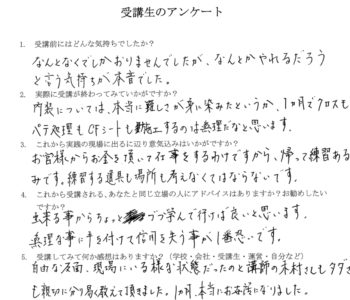 受講生のアンケート
1. 受講前にはどんな気持ちでしたか？
なんとなくでしかおりませんでしたが、なんとかやれるだろう
と言う気持ちが本音でした。
2. 実際に受講が終わってみていかがですか？
内装については、本当に難しさが身に染みたというか、1ヵ月でクロスも
パテ処理もCFシートも施工するのは無理だなと思います。
3. これから実践の現場に出るに辺り意気込みはいかがですか？
お客様からお金を頂いて仕事をするわけですから、帰って練習ある
みです。練習する道具も場所も考えなくてはならないです。
4. これから受講される、あなたと同じ立場の人にアドバイスはありますか？お勧めしたい
ですか？
出来る事からちょっとづつ学んで行けば良いと思います。
無理な事に手を付けて信用を失う事が1番恐いです。
5. 受講してみて何か感想はありますか？（学校・会社・受講生・運営・自分など）
自由な反面、現場にいる様な状態だったのと講師の木村さんも
も親切に分り易く教えて頂きました。1ヵ月、本当にお世話になりました。